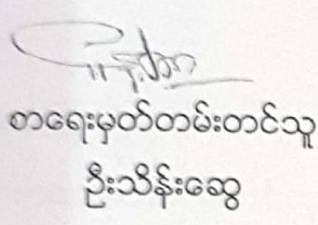 စာရေးမှတ်တမ်းတင်သူ
ဦးသိန်းဆွေ